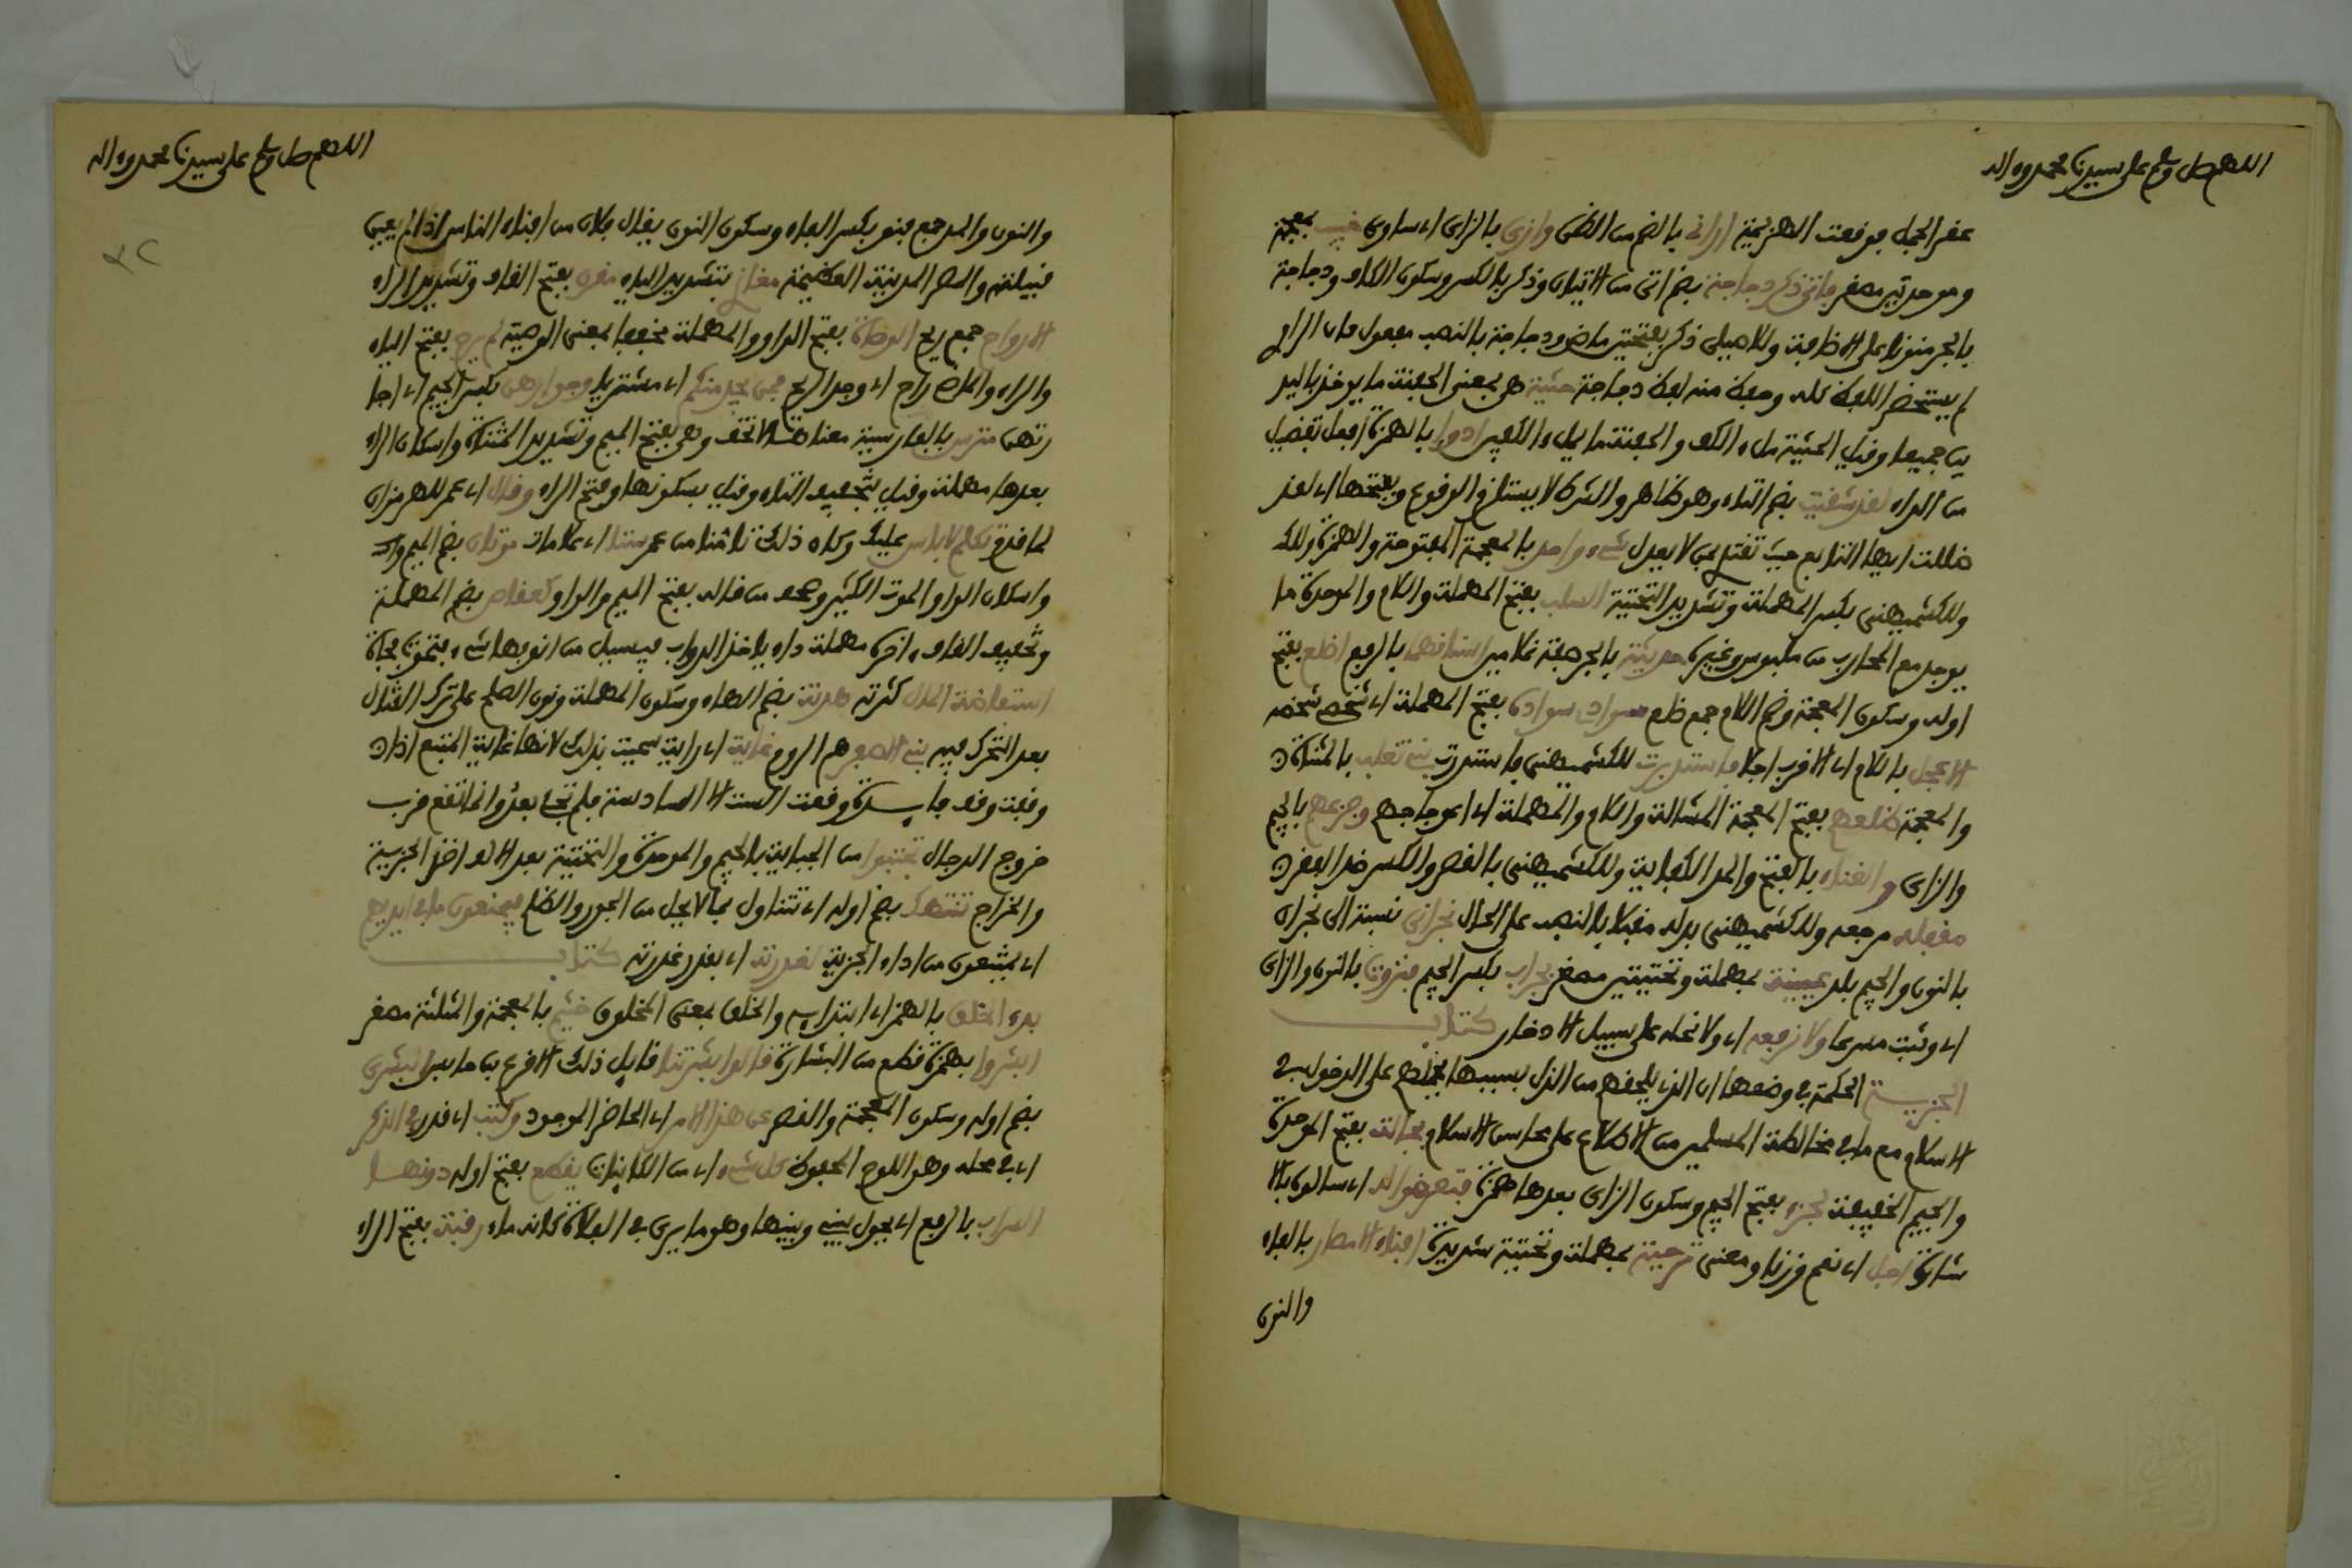 اللهم صل وسلم على سيدنا محمد وءاله
عفر الجمل فوقعت الهزيمة أراني بالضم من الظن وازى بالزاي اي ساوى خبيب بمعجمة
وموحدتين مصغر فاتى ذكر دجاجة بضم اتى من الاتيان وذكر بالكسر وسكون الكاف ودجاجة
بالجر منونا على الاضافة وللاصيلي ذكر بفتحتين ماض ودجاجة بالنصب مفعول فان الراوي
لم يستحضر اللفظ كله وحفظ منه لفظ دجاجة حثية هي بمعنى الحفنة ما يوخذ باليد
ين جميعا وقيل الحثية ملء الكف والحفنة ما يملء الكفين ادوا بالهمزة افعل تفضيل
من الداء لقد شقيت بضم التاء وهو ظاهر والشرط لا يستلزم الوقوع وبفتحها اي لقد
ضللت ايها التابع حيث تقتدي بمن لا يعدل شيء واحد بالمعجمة المفتوحة والهمزة وللكـ
وللكشميهني بكسر المهملة وتشديد التحتية السلب بفتح المهملة واللام والموحدة ما
يوجد مع المحارب من ملبوس وغيره حديثة بالجر صفة غلامين اسنانهما بالرفع اضلع بفتح
اوله وسكون المعجمة وضم اللام جمع ضلع سوادي سواده بفتح المهملة اي شخصي شخصه
الاعجل باللام اي الاقرب اجلا فاستدبرت للكشميهني فاستدرت بني تغلب بالمثناة
والمعجمة ضلعهم بفتح المعجمة المشالة واللام والمهملة اي اعوجاجهم وجزعهم بالجيم
والزاي والغناء بالفتح والمد الكفاية وللكشميهني بالقصر والكسر ضد الفقر
مقفله مرجعه وللكشميهني بدله مقبلا بالنصب على الحال نجراني نسبة الى نجران
بالنون والجيم بلد عيينة بمهملة وتحتيتين مصغر بجراب بكسر الجيم فنزونا بالنون والزاي
اي وثبت مسرعا ولا نرفعه اي ولا نحمله على سبيل الادخار كتاب
الجزية الحكمة في وضعها ان الذي يلحقهم من الذل بسببها يحملهم على الدخول في
الاسلام مع ما في مخالطة المسلمين من الاطلاع على محاسن الاسلام بجالة بفتح الموحدة
والجيم الخفيفة لجزء بفتح الجيم وسكون الزاي بعدها همزة فتعرضوا له اي سالوه بالا
شارة اجل اي نعم وزنا ومعنى حية بمهملة وتحتية شديدة افناء الامصار بالفاء
والنون
اللهم صل وسلم على سيدنا محمد وءاله
والنون والمد جمع فنو بكسر الفاء وسكون النون يقال فلان من افناء الناس اذا لم يعين
قبيلته والمصر المدينة العظيمة مغازي بتشديد الياء مقرن بفتح القاف وتشديد الراء
الارواح جمع ريح الوصاة بفتح الواو والمهملة مخففا بمعنى الوصية لم يرح بفتح الياء
والراء واصله راح اي وجد الريح فمن يجد منكم اي مشتريا وجوارهن بكسر الجيم اي اجا
رتهن مترس بالفارسية معناه لا تخف وهي بفتح الميم وتشديد المثناة واسكان الراء
بعدها مهملة وقيل بتخفيف التاء وقيل بسكونها وفتح الراء وقال اي عمر للهرمزان
لما قدم تكلم لا باس عليك وكان ذلك تامينا من عمر ستا اي علامات موتان بضم الميم
واسكان الواو الموت الكثير وصحف من قاله بفتح الميم والواو كعقاص بضم المهملة
وتخفيف القاف ءاخره مهملة داء ياخذ الدواب فيسيل من انوفها شيء فتموت فجاة
استفاضة المال كثرته هدنة بضم الهاء وسكون المهملة ونون الصلح على ترك القتال
بعد التحرك فيه بني الاصفر هم الروم غاية اي راية سميت بذلك لانها غاية المتبع اذا
وقفت وقف فايدة وقعت الست الا السادسة فلم تجئ بعد وانما تقع قرب
خروج الدجال تجتبوا من الجباية بالجيم والموحدة والتحتية بعد الالف اخذ الجزية
والخراج تنتهك بضم اوله اي تتناول بما لا يحل من الجور والظلم فيمنعون ما في ايديهم
اي يمتنعون من اداء الجزية لغدرته اي بقدر غدرته كتاب
بدء الخلق بالهمز اي ابتدائيه والخلق بمعنى المخلوق خثيم بالمعجمة والمثلثة مصغر
ابشروا بهمزة قطع من البشارة قالوا بشرتنا قايل ذلك الاقرع بن حابس البشرى
بضم اوله وسكون المعجمة والقصر عن هذا الامر اي الحاضر الموجود وكتب اي قدر في الذكر
اي في محله وهو اللوح المحفوظ كل شيء اي من الكاينات يقطع بفتح اوله دونها
السراب بالرفع اي يحول بيني وبينها وهو ما يرى في الفلاة كانه ماء رقبة بفتح الراء